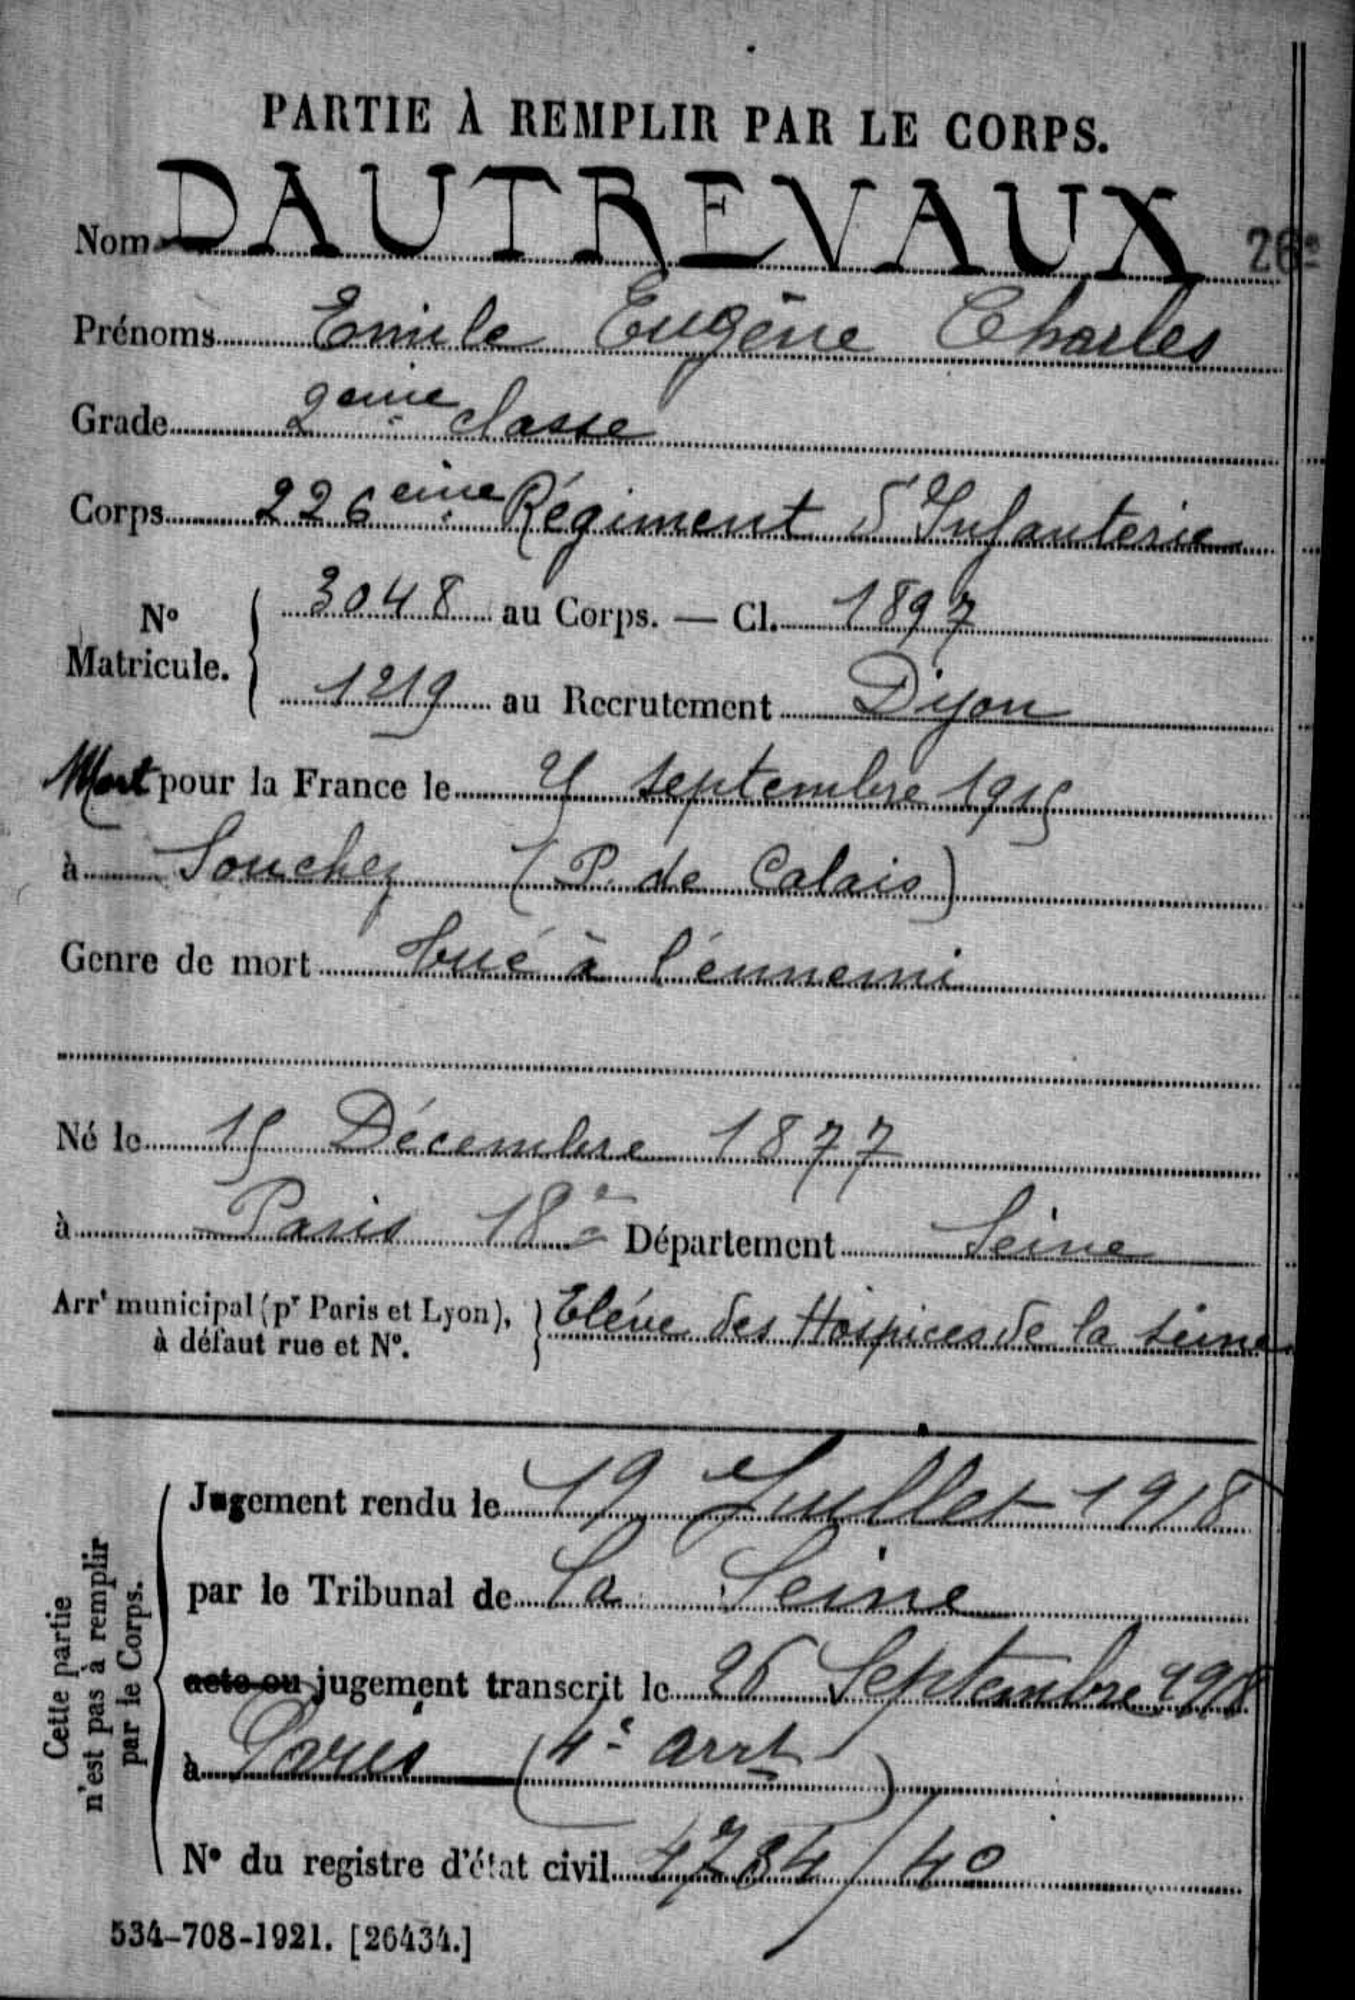 PARTIE À REMPLIR PAR LE CORPS.
Nom DAUTREVAUX 26e
Prénoms Emile Eugène Charles
Grade 2eme classe
Corps 226eme Régiment d'Infanterie
No Matricule. { 3048 au Corps. — Cl. 1897
1219 au Recrutement Dijon
Mort pour la France le septembre 1915
à Souchez (P. de Calais)
Genre de mort tué à l'énnemi
Né le 15 Décembre 1877
à Paris 18e Département Seine
Arrt municipal (pr Paris et Lyon), } Eléve des Hospices de la seine
à défaut rue et No.
Cette partie
n'est pas à remplir
par le Corps.
Jugement rendu le 19 Juillet 1918
par le Tribunal de La Seine
acte ou jugement transcrit le 26 Septembre 1918
à Paris (4e arrt)
No du registre d'état civil 4784/40
534-708-1921. [26434.]